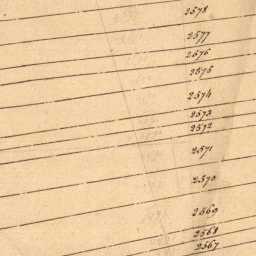 2578
2577
2576
2575
2574
2573
2572
2571
2570
2569
2568
2567